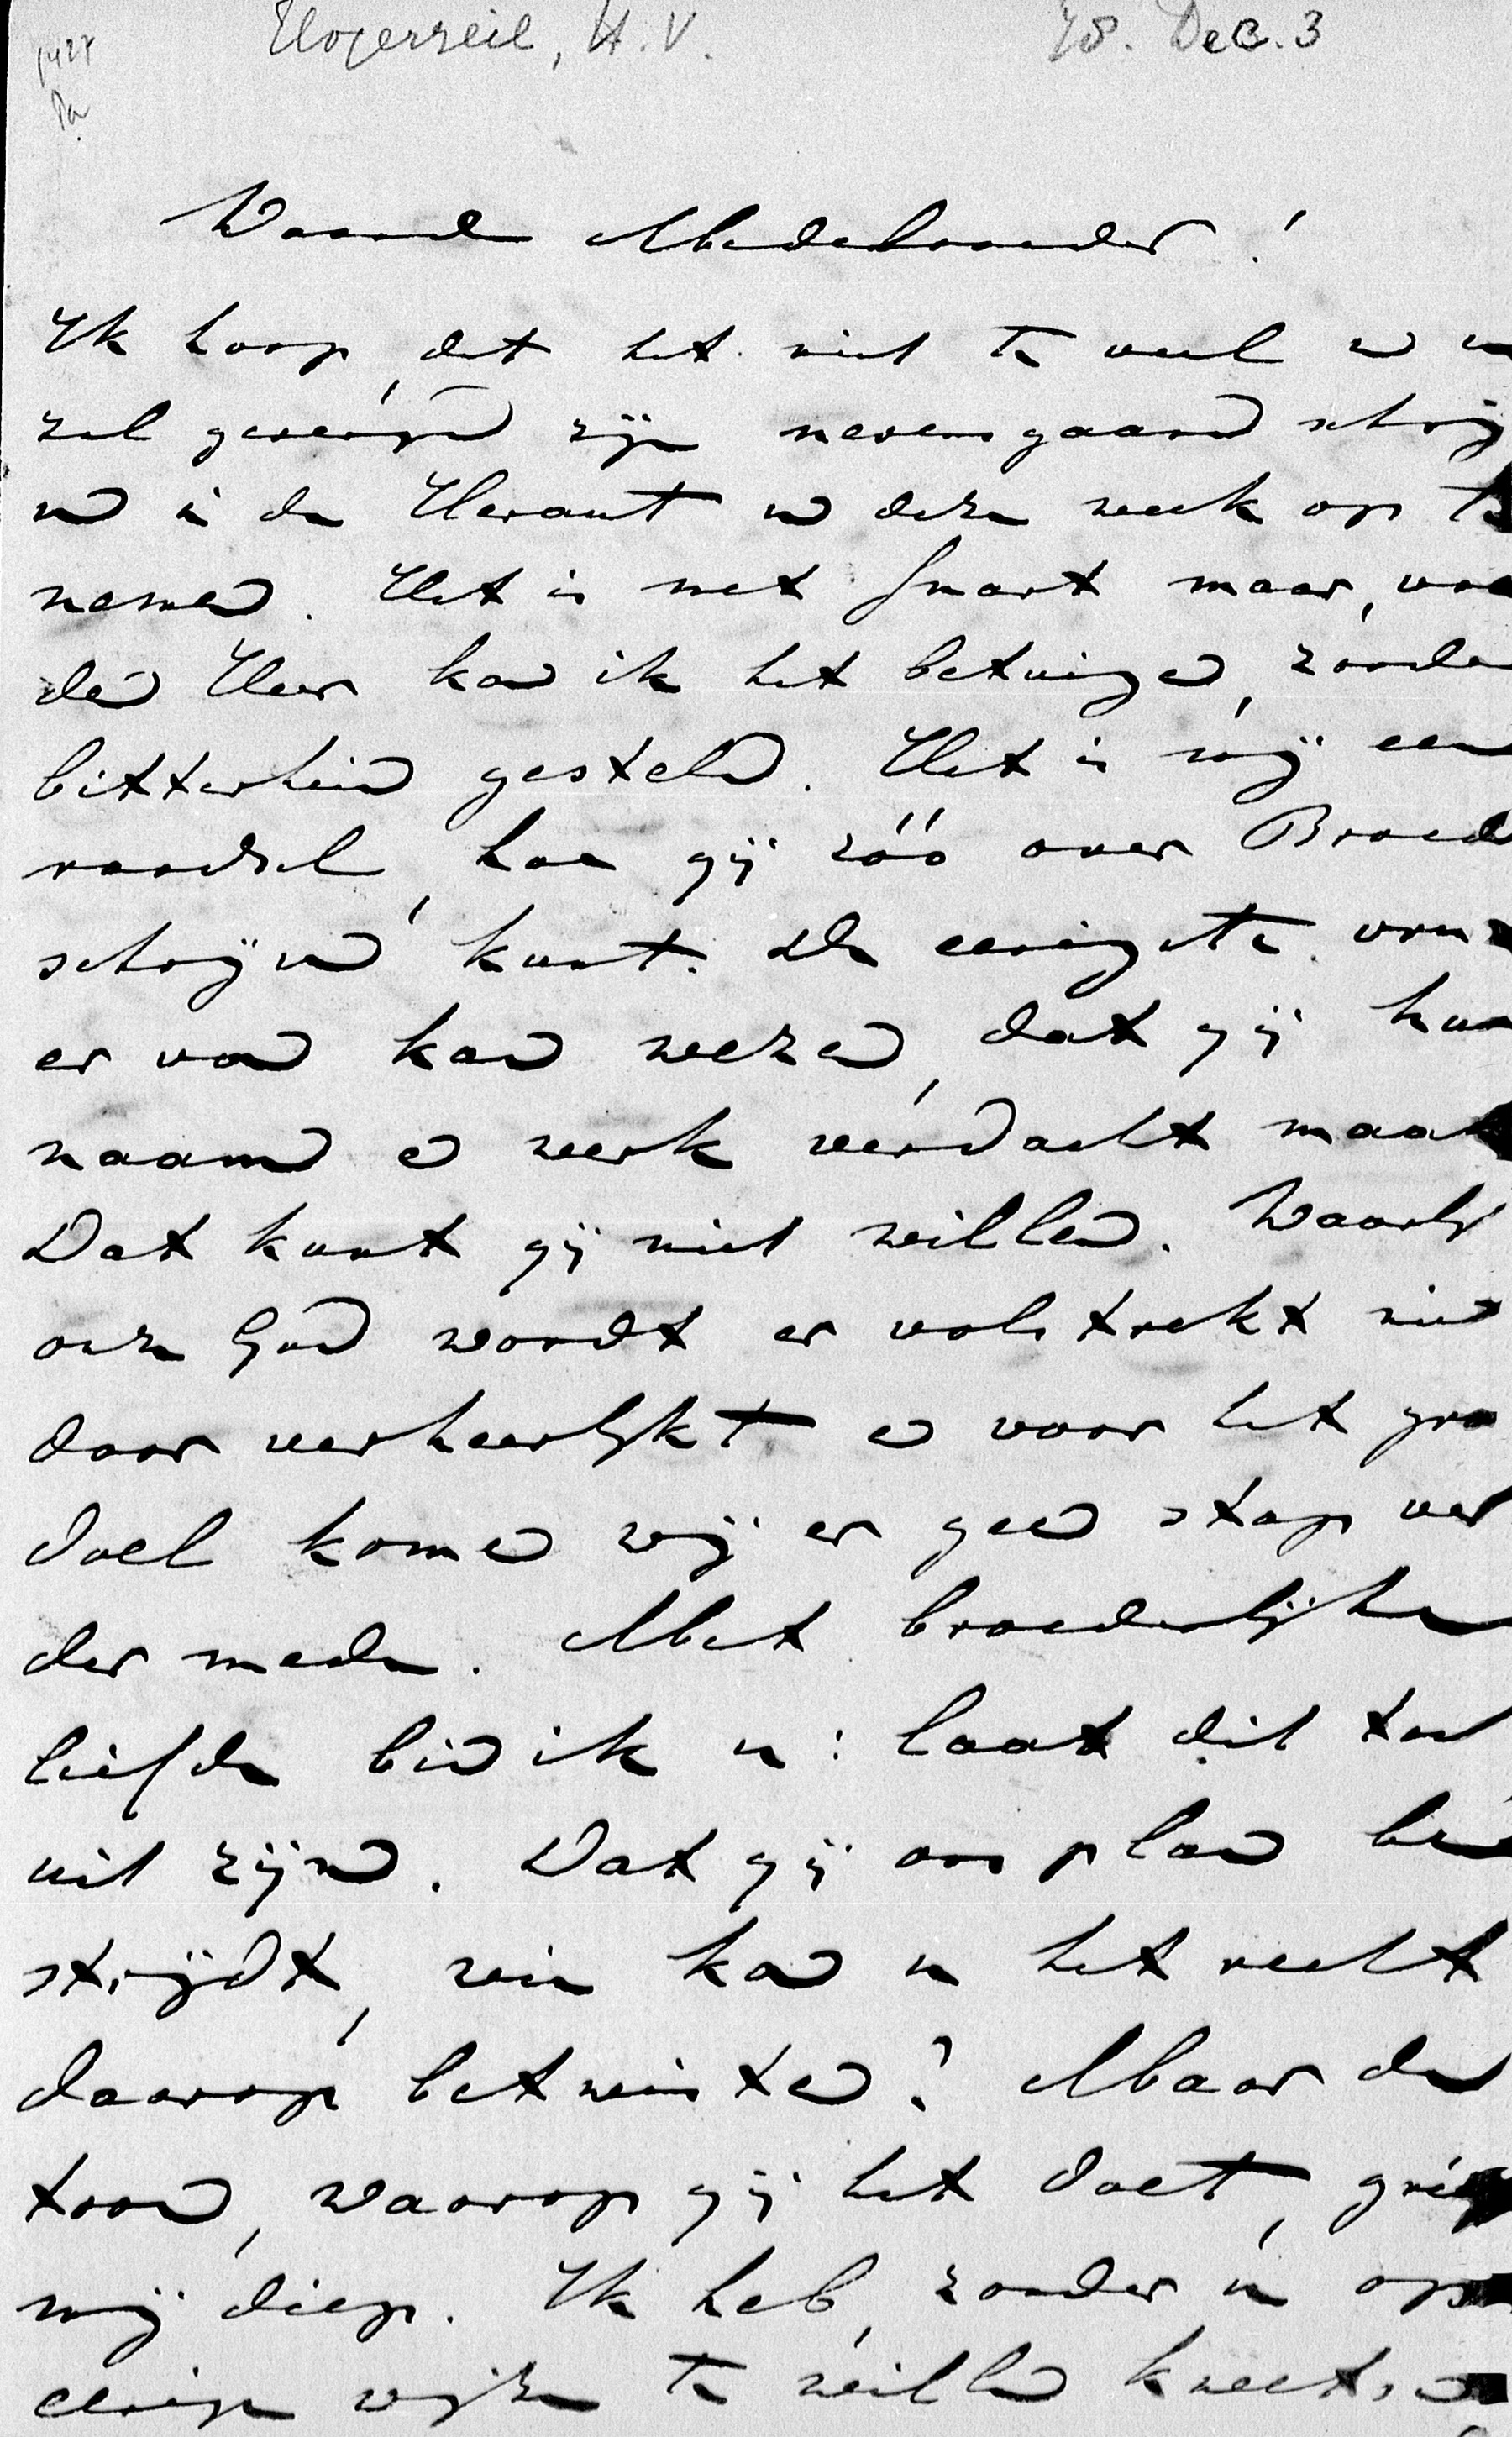 Hogerzeil, H.V. 78. Dec. 3
1428
Pa
Waarde Medebroeder!
Ik hoop, dat het niet te veel van u
zal gevergd zijn nevensgaand schrij
ven in de Heraut van deze week op te
nemen. Het is met smart maar, voor
den Heer kan ik het betuigen, zonder
bitterheid gesteld. Het is mij een
raadsel, hoe gij zóó over Broed
schrijven kunt. De eenigste vru
er van kan wezen, dat gij hun
naam en werk verdacht maakt
Dat kunt gij niet willen. Waarlijk
onze God wordt er volstrekt niet
door verheerlijkt en voor het groo
doel komen wij er geen stap ver
der mede. Met broederlijke
liefde bid ik u: laat dit toch
uit zijn. Dat gij ons plan be
strijdt, wie kan u het recht
daarop betwisten? Maar de
toon, waarop gij het doet, grieft
mij diep. Ik heb, zonder u op
eenige wijze te willen kwetsen,